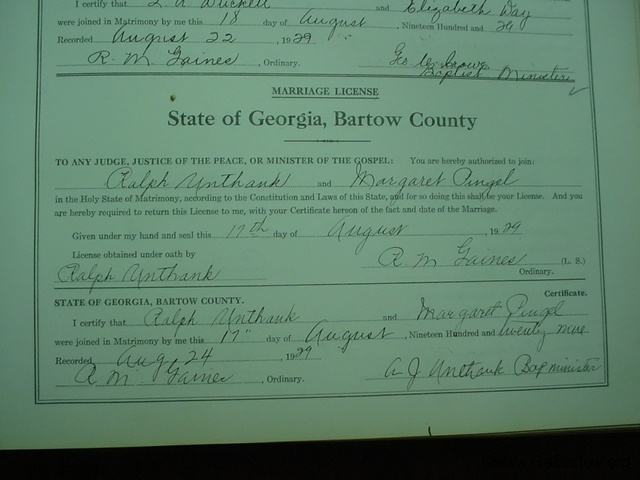 I certify that L. A. Duckett and Elizabeth Day
were joined in Matrimony by me this 18 day of August, Nineteen Hundred and 29
Recorded August 22, 1929
R. M. Gaines, Ordinary. Geo
Baptist Minister
MARRIAGE LICENSE
State of Georgia, Bartow County
TO ANY JUDGE, JUSTICE OF THE PEACE, OR MINISTER OF THE GOSPEL: You are hereby authorized to join:
Ralph Unthank and Margaret Pingel
in the Holy State of Matrimony, according to the Constitution and Laws of this State, and for so doing this shall be your License. And you
are hereby required to return this License to me, with your Certificate hereon of the fact and date of the Marriage.
Given under my hand and seal this 17th day of August, 1929
License obtained under oath by R. M Gaines (L. S.)
Ralph Unthank Ordinary.
STATE OF GEORGIA, BARTOW COUNTY. Certificate.
I certify that Ralph Unthank and Margaret Pingel
were joined in Matrimony by me this 17" day of August, Nineteen Hundred and twenty nine
Recorded Aug, 24 1929
R. M. Gaines, Ordinary. A J Unthank Bap minister